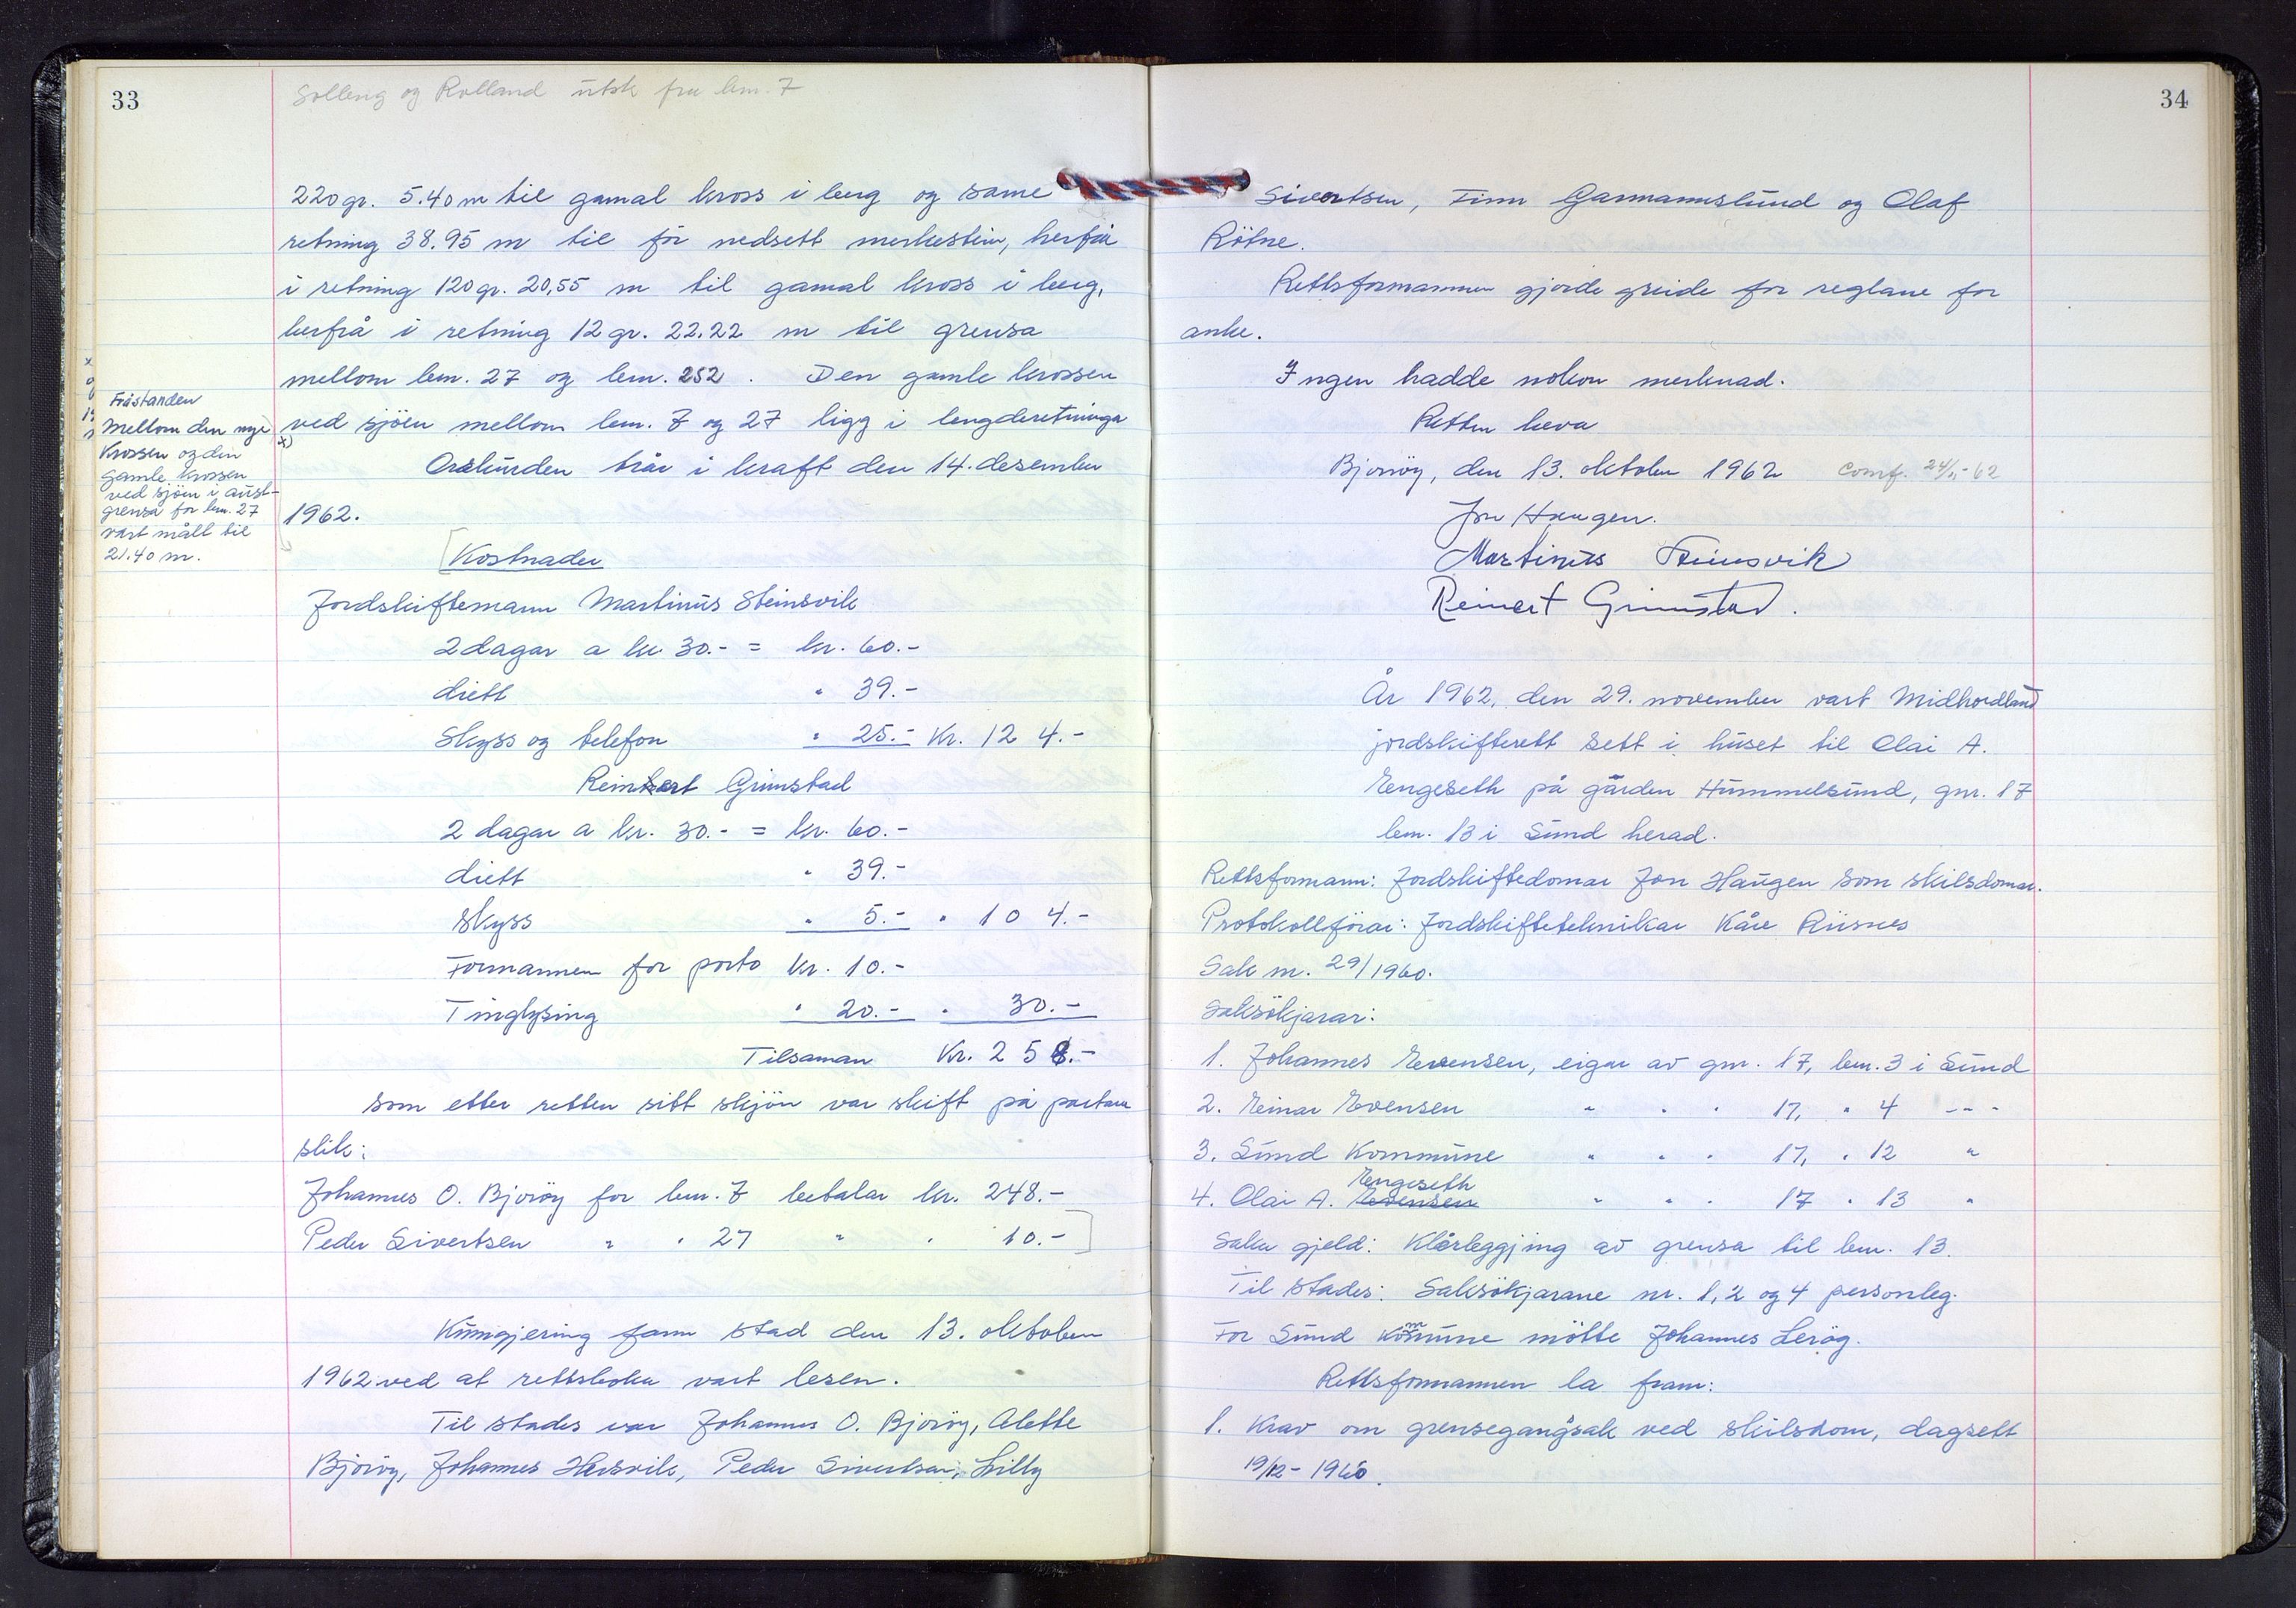 33
Solleng og Rolland utsk fra bnr. 7
220 gr. 5.40 m til gamal kross i berg og same
retning 38.95 m til før nedsett merkestein, herfrå
i retning 120 gr. 20,55 m til gamal kross i berg,
herfrå i retning 12 gr. 22.22 m til grensa
mellom bnr. 27 og bnr. 252. Den gamle krossen
ved sjöen mellom bnr. 7 og 27 ligg i lengderetninga
x)
Orskurden trår i kraft den 14. desember
1962.
Fråstanden
mellom den nye
Krossen og den
gamle krossen
ved sjöen i aust-
grensa for bnr. 27
vart målt til
21.40 m.
Kostnader
Jordskiftemann Martinus Steinsvik
2 dagar a kr 30.- = kr. 60.-
diett " 39.-
Skyss og telefon " 25.- Kr. 124.-
Reinert Grimstad
2 dagar a kr. 30.- = kr. 60.-
diett " 39.-
skyss " 5.- " 104.-
Formannen for porto kr. 10.-
Tinglysing " 20.- " 30.-
Tilsaman Kr. 258.-
som etter retten sitt skjön var skift på partane
slik:
Johannes O. Bjoröy for bnr. 7 betalar kr. 248.-
Peder Sivertsen " " 27 " " 10.-
Kunngjering fann stad den 13. oktober
1962 ved at rettsboka vart lesen.
Til stades var Johannes O. Bjoröy, Alette
Bjoröy, Johannes Hersvik, Peder Sivertsen, Lilly
34
Sivertsen, Finn Garmannslund og Olaf
Rötne.
Rettsformannen gjorde greide for reglane for
anke.
Ingen hadde nokon merknad.
Retten heva
Bjoröy, den 13. oktober 1962 Comf. 24/11-62
Jon Haugen.
Martinus Steinsvik
Reinert Grimstad.
År 1962, den 29. november vart Midhordland
jordskifterett sett i huset til Olai A.
Engeseth på gården Hummelsund, gnr. 17
bnr. 13 i Sund herad.
Rettsformann: Jordskiftedomar Jon Haugen som skilsdomar.
Protokollförar: Jordskifteteknikar Kåre Riisnes
Sak nr. 29/1960.
Saksökjarar:
1. Johannes Evensen, eigar av gnr. 17, bnr. 3 i Sund
2. Einar Evensen " " " 17, " 4 - " -
3. Sund Kommune " " " 17, " 12 "
4. Olai A. Evensen Engeseth " " " 17 " 13 "
Saka gjeld: Klårleggjing av grensa til bnr. 13.
Til stades: Saksökjarane nr. 1, 2 og 4 personleg.
For Sund kommune mötte Johannes Leröy.
Rettsformannen la fram:
1. Krav om grensegangsak ved skilsdom, dagsett
19/12-1960.